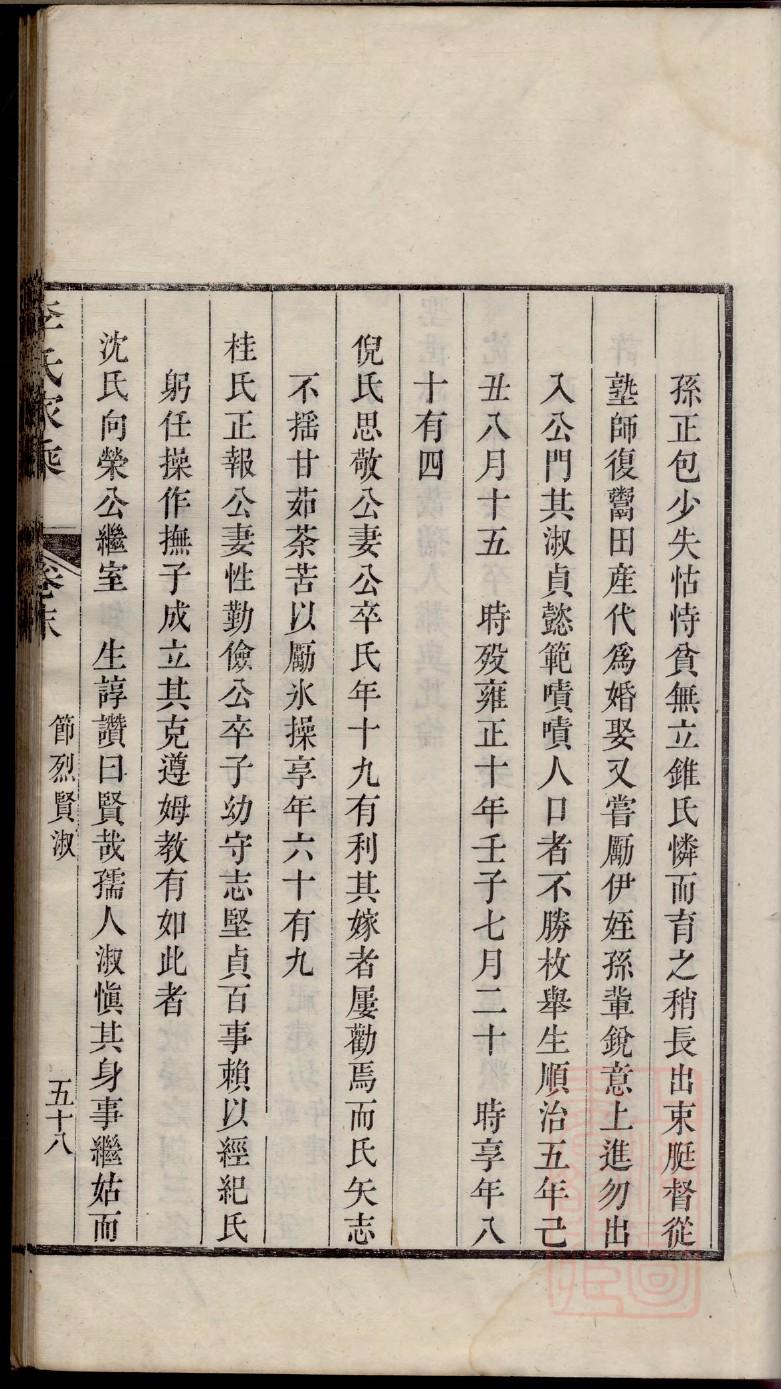 孫正包少失怙恃貧無立錐氏憐而育之稍長出束脡督從
塾師復鬻田産代爲婚娶又嘗勵伊姪孫輩銳意上進勿出
入公門其淑貞懿範嘖嘖人口者不勝枚舉生順治五年己
丑八月十五 時殁雍正十年壬子七月二十 時享年八
十有四
倪氏思敬公妻公卒氏年十九有利其嫁者屢勸焉而氏矢志
不揺甘茹荼苦以勵氷操享年六十有九
桂氏正報公妻性勤儉公卒子幼守志堅貞百事賴以經紀氏
躬任操作撫子成立其克遵姆教有如此者
沈氏向榮公繼室 生諄讚曰賢哉孺人淑愼其身事繼姑而
李氏家乘 卷末 節烈賢淑 五十八